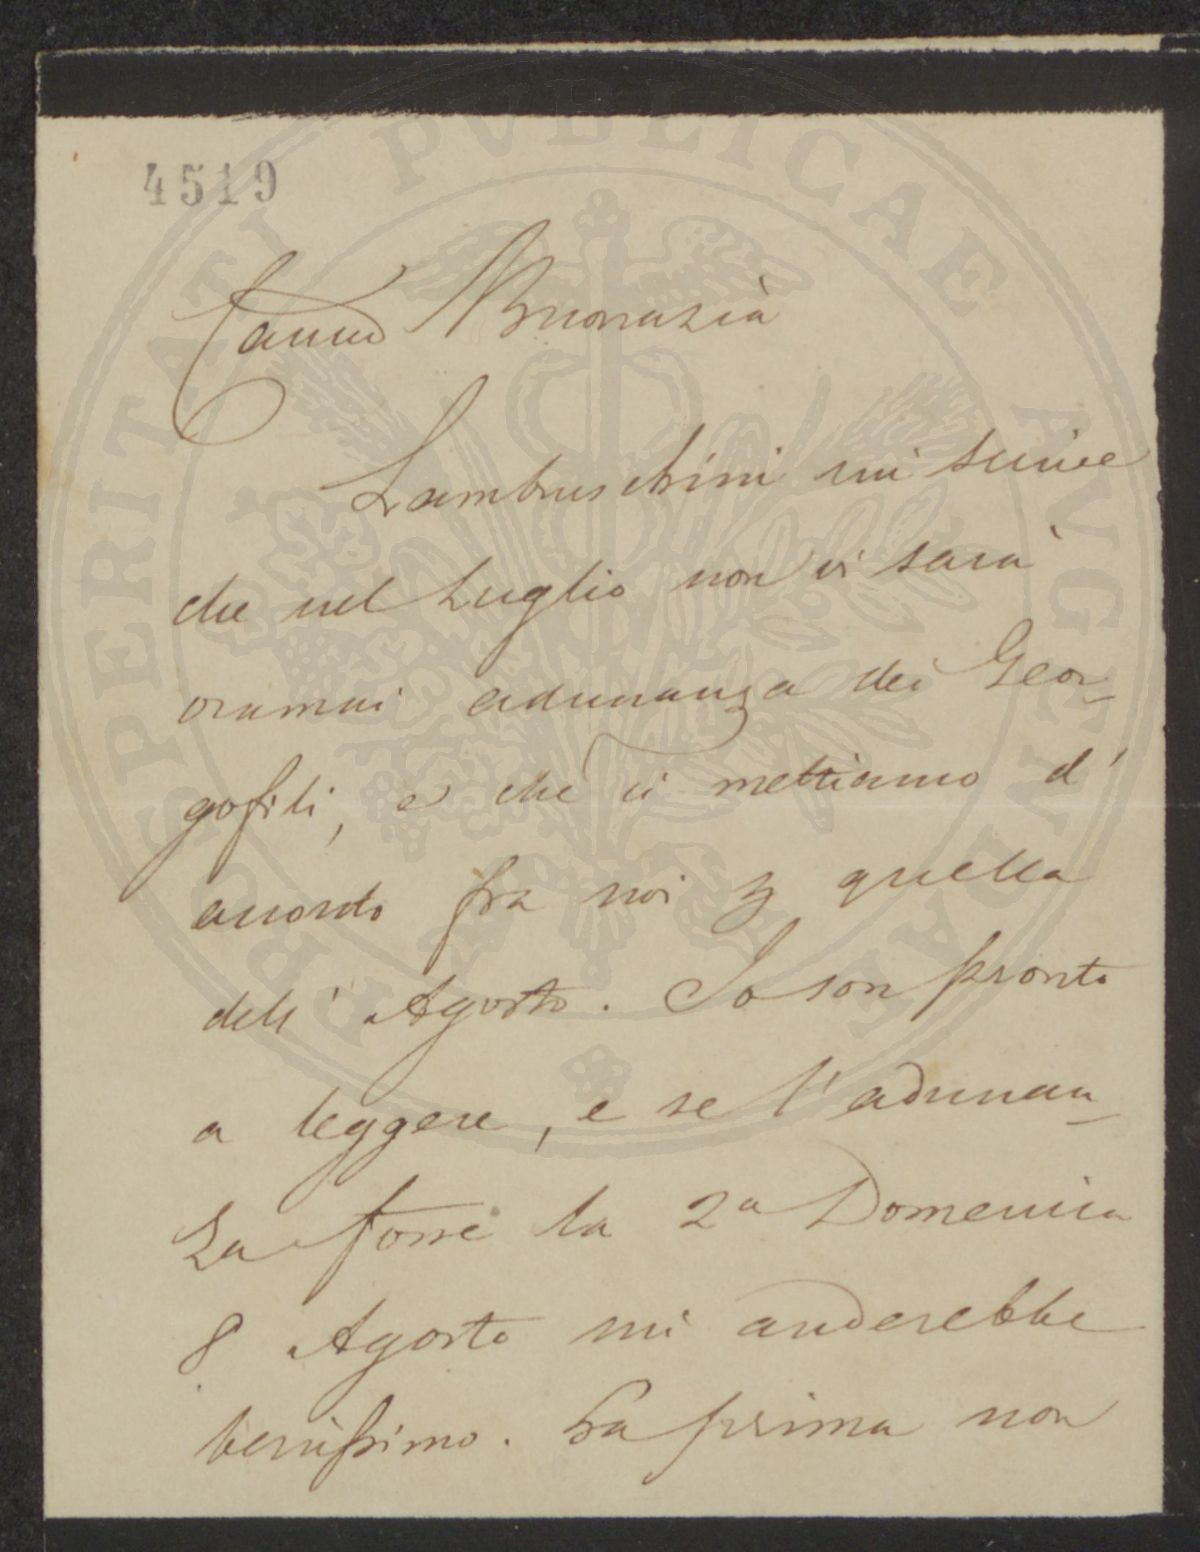 4519
Caro Buonazia
Lambruschini mi scrive
che nel Luglio non vi sarà
oramai adunanza dei Geor-
gofili, e che ci mettiamo d'
accordo fra noi quella
dell' Agosto. Io son pronto
a leggere, e se l'adunan-
za fosse la 2a Domenica
8 Agosto mi anderebbe
benissimo. La prima non
PROSPERITATI PVBLICAE AVGENDAE